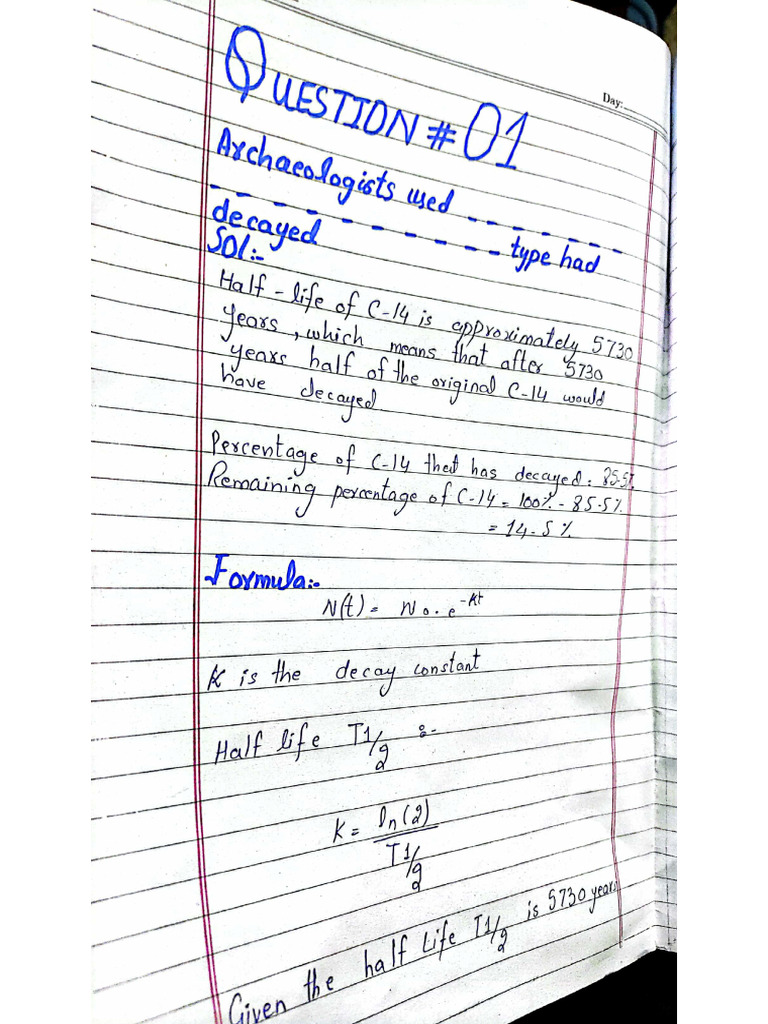 Day:
QUESTION # 01
Archaeologists used --------
------------- type had
decayed
Sol:-
Half-life of C-14 is approximately 5730
years, which means that after 5730
years half of the original C-14 would
have decayed
Percentage of C-14 that has decayed: 85.5%
Remaining percentage of C-14 = 100% - 85.5%
= 14.5%
Formula:-
N(t) = No. e^-Kt
K is the decay constant
Half life T1/2 :-
K = ln(2)/T1/2
Given the half Life T1/2 is 5730 years